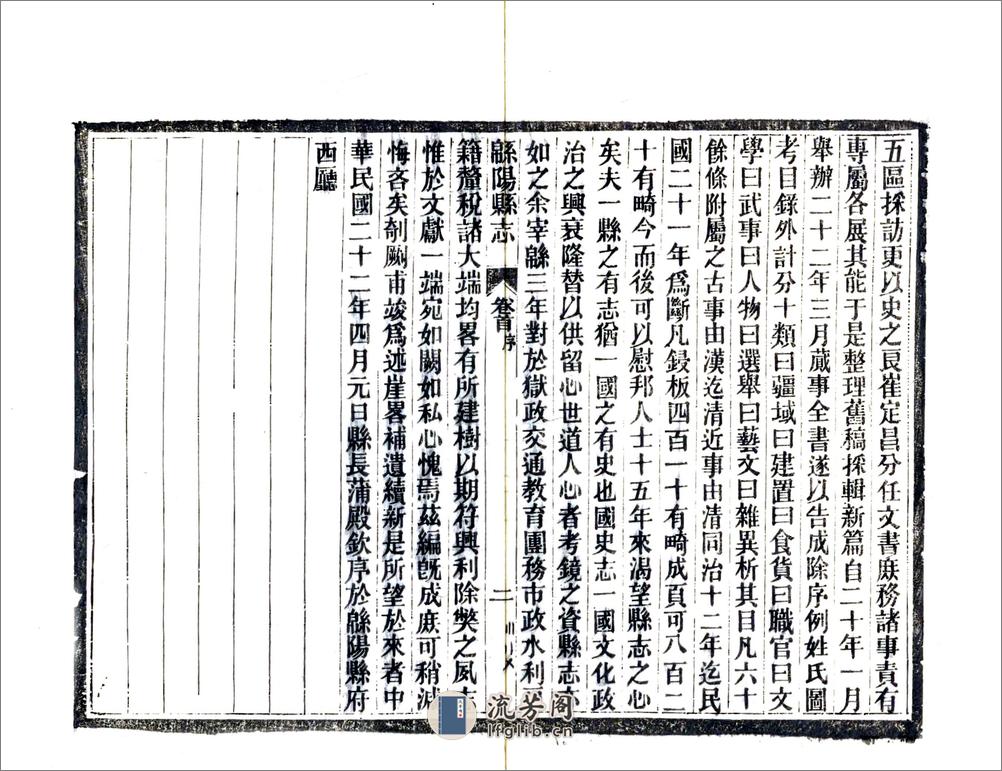 五區採訪更以史之良崔定昌分任文書庶務諸事責有
專屬各展其能于是整理舊稿採輯新篇自二十年一月
舉辦二十二年三月蕆事全書遂以告成除序例姓氏圖
考目錄外計分十類曰疆域曰建置曰食貨曰職官曰文
學曰武事曰人物曰選舉曰藝文曰雜異析其目凡六十
餘條附屬之古事由漢迄清近事由清同治十二年迄民
國二十一年爲斷凡鋟板四百一十有畸成頁可八百二
十有畸今而後可以慰邦人士十五年來渴望縣志之心
矣夫一縣之有志猶一國之有史也國史志一國文化政
治之興衰隆替以供留心世道人心者考鏡之資縣志亦
如之余宰緜三年對於獄政交通教育團務市政水利
緜陽縣志 卷首 序 二
籍釐稅諸大端均畧有所建樹以期符興利除獘之夙志
惟於文獻一端宛如闕如私心愧焉茲編旣成庶可稍減
悔吝矣剞劂甫竣爲述崖畧補遺續新是所望於來者中
華民國二十二年四月元日縣長蒲殿欽序於緜陽縣府
西廳
流芳阁
lfglib.cn